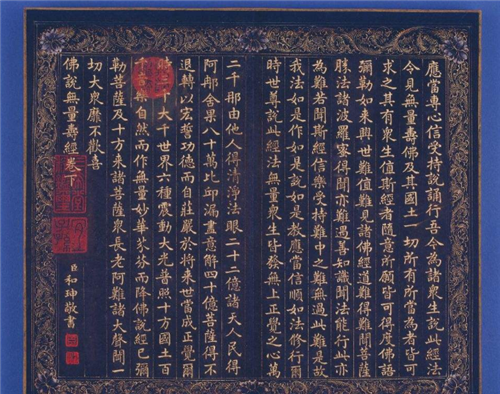 應當專心信受持誦說行吾今為諸衆生說此經法
令見無量壽佛及其國土一切所有所當為者皆可
求之其有衆生值斯經者隨意所願皆可得度佛語
彌勒如來興世難值難見諸佛經道難得難聞菩薩
勝法諸波羅蜜得聞亦難遇善知識聞法能行此亦
為難若聞斯經信樂受持難中之難無過此難是故
我法如是作如是說如是教應當信順如法修行爾
時世尊說此經法無量衆生皆發無上正覺之心萬
二千那由他人得清淨法眼二十二億諸天人民得
阿那含果八十萬比丘漏盡意解四十億菩薩得不
退轉以宏誓功德而自莊嚴於將來世當成正覺爾
時三千大千世界六種震動大光普照十方國土百
千音樂自然而作無量妙華芬芬而降佛說經已彌
勒菩薩及十方來諸菩薩衆長老阿難諸大聲聞一
切大衆靡不歡喜
佛說無量壽經卷下
臣和珅敬書